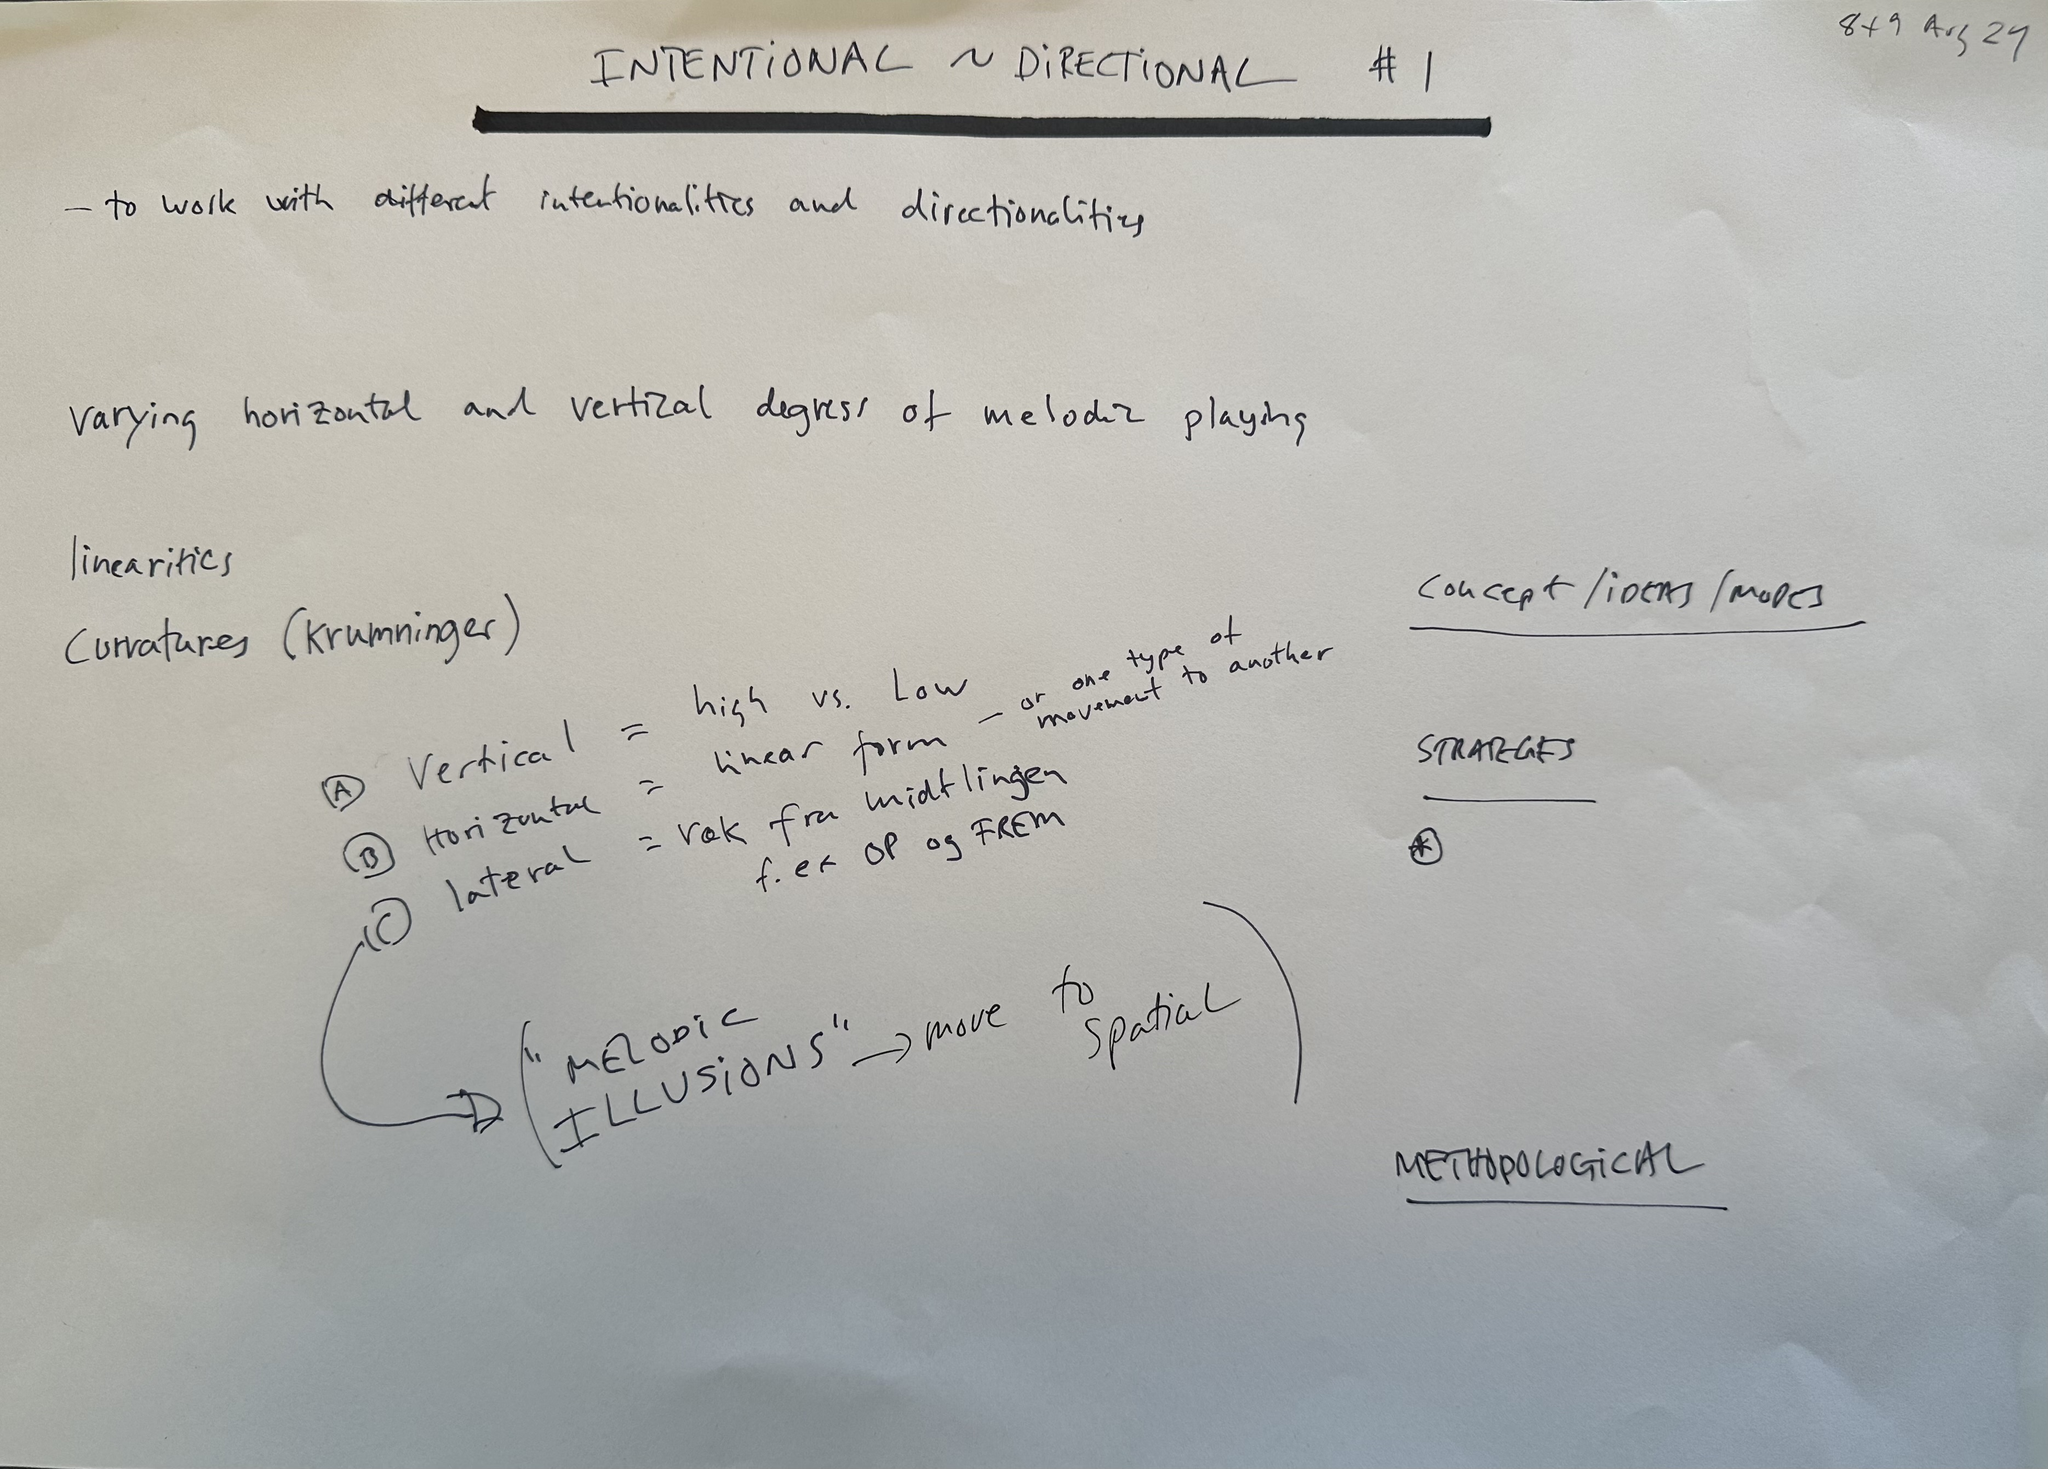 8+9 Aug 24
INTENTIONAL ~ DIRECTIONAL #1
– to work with different intentionalities and directionalities
varying horizontal and vertical degress of melodic playing
linearities
Curvatures (Krumninger)
(A) Vertical = high vs. Low
(B) Horizontal = linear form – or one type of
movement to another
(C) lateral = væk fra midtlingen
f. ex OP og FREM
("MELODIC
ILLUSIONS" → move to
spatial)
Concept / IDEAS / MODES
STRATEGES
*
METHODOLOGICAL